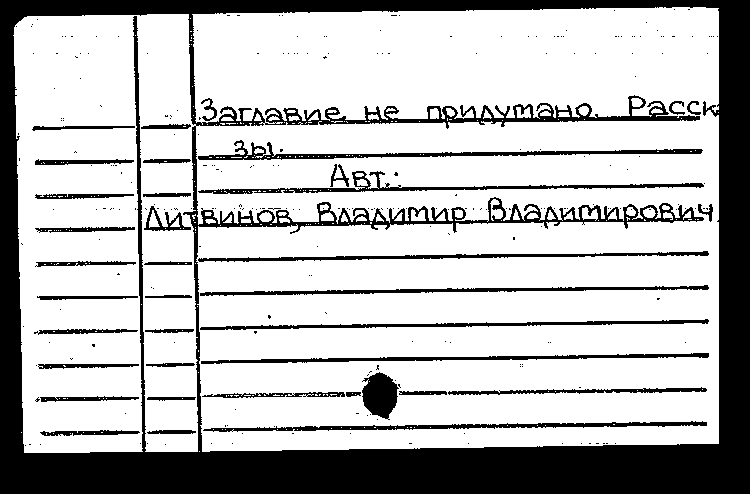 Заглавие не придумано. Расск
зы.
Авт.:
Литвинов, Владимир Владимирович